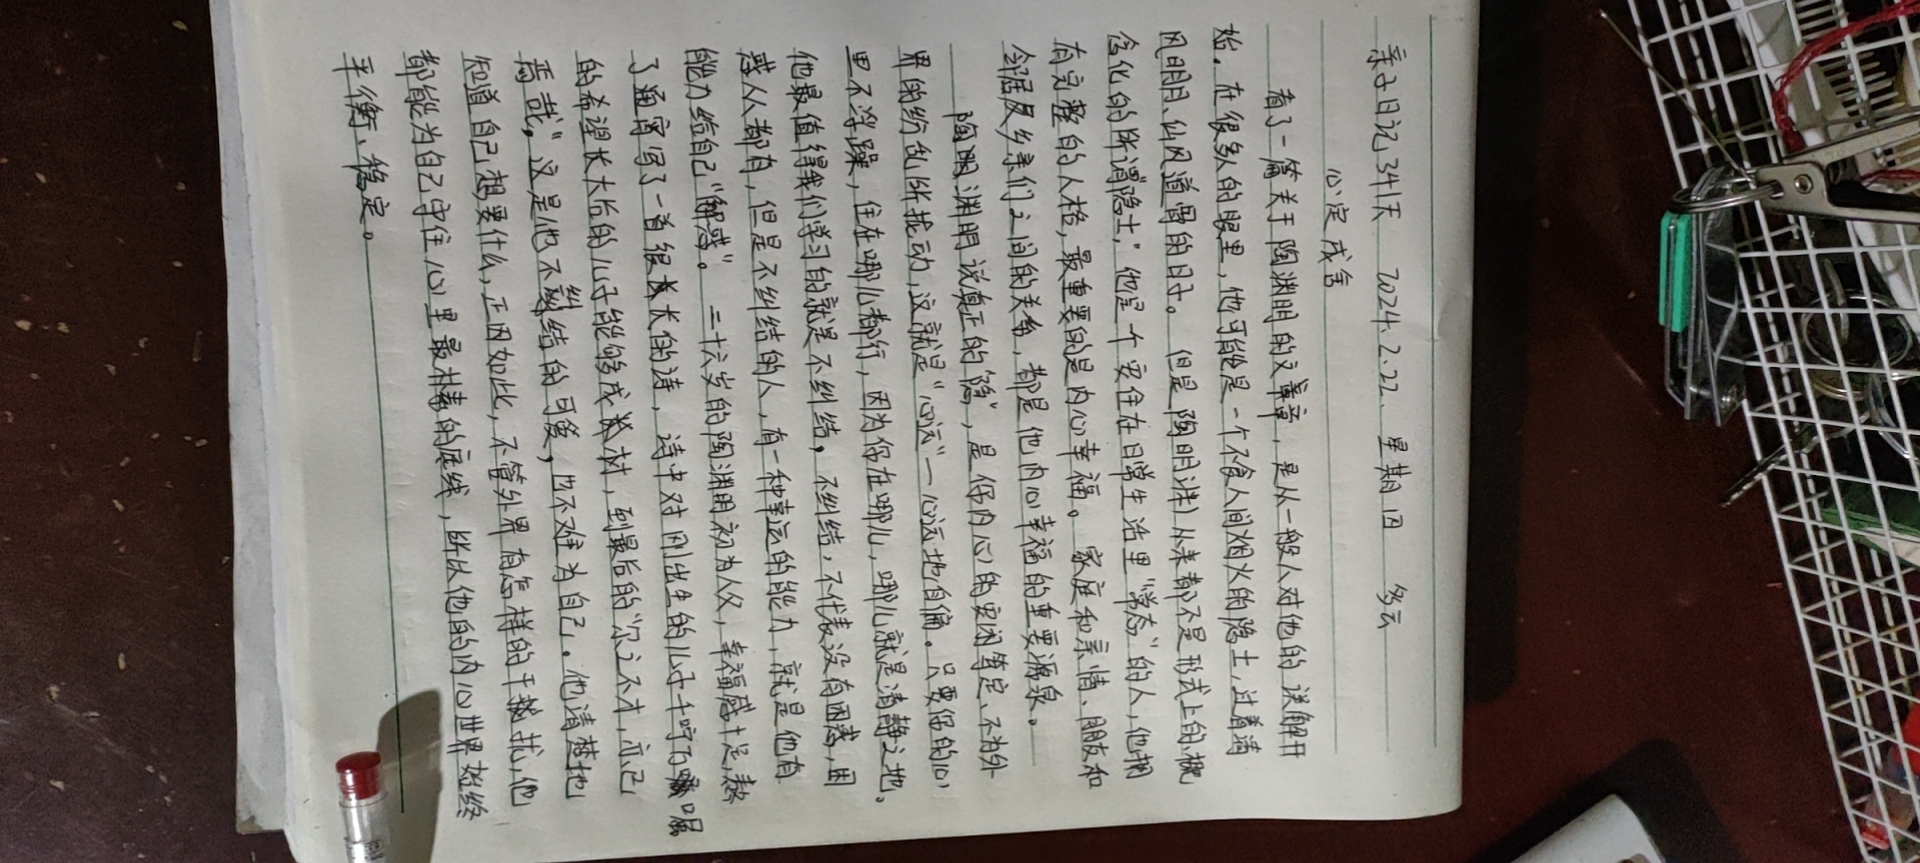 亲子日记341天 2024.2.22. 星期四 多云
心定成舍
看了一篇关于陶渊明的文章, 是从一般人对他的误解开
始。在很多人的眼里, 他可能是一个不食人间烟火的隐士, 过着清
风明月、仙风道骨的日子。但是陶明渊从来都不是形式上的、概
念化的所谓“隐士,”他是一个安住在日常生活里“常态”的人, 他拥
有完整的人格, 最重要的是内心幸福。家庭和亲情、朋友和
邻居及乡亲们之间的关系, 都是他内心幸福的重要源泉。
陶渊明说真正的“隐”, 是你内心的安闲笃定、不为外
界的纷乱所扰动, 这就是“心远”—心远地自偏。只要你的心
里不浮躁, 住在哪儿都行, 因为你在哪儿, 哪儿就是清静之地。
他最值得我们学习的就是不纠结。不纠结, 不代表没有困惑, 困
惑人人都有, 但是不纠结的人, 有一种幸运的能力, 就是他有
能力给自己“解惑”。二十六岁的陶渊明初为人父, 幸福感十足, 熬
了通宵写了一首很长长的诗, 诗中对刚出生的儿子千叮万嘱
的希望长大后的儿子能够成材, 到最后的“尔之不才, 亦已
焉哉,”这是他不纠结的可爱, 也不难为自己。他清楚地
知道自己想要什么, 正因如此, 不管外界有怎样的干扰, 他
都能为自己守住心里最朴素的底线, 所以他的内心世界始终
平衡、稳定。